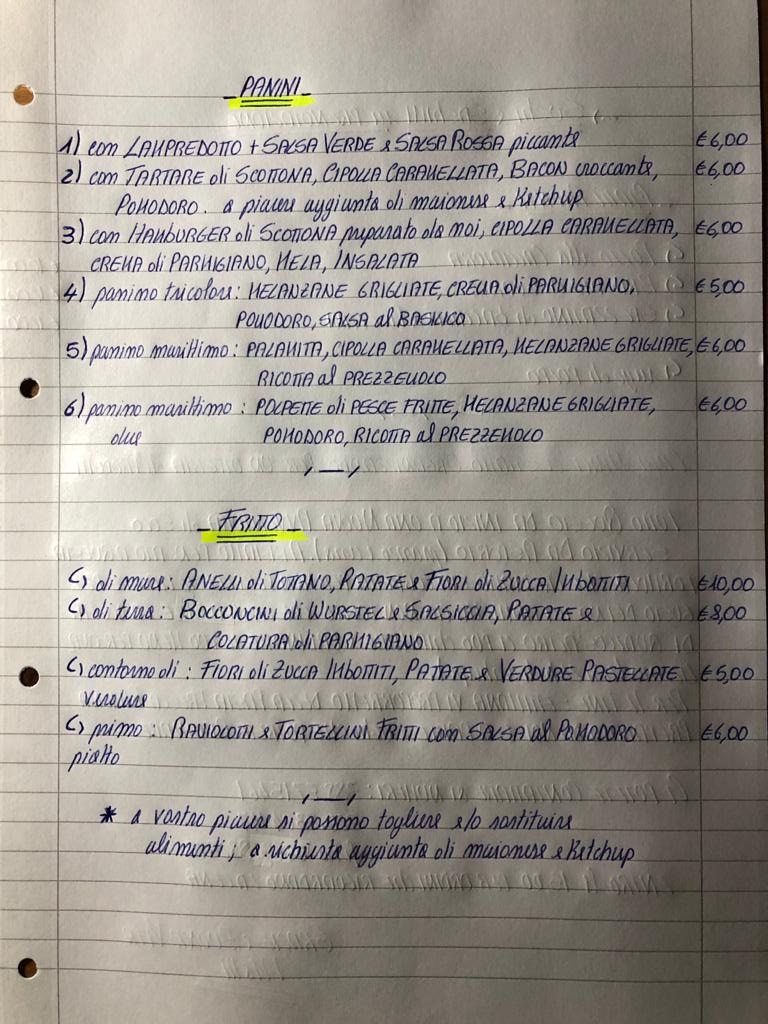 - PANINI -
1) con LAMPREDOTTO + SALSA VERDE e SALSA ROSSA piccante €6,00
2) con TARTARE di SCOTTONA, CIPOLLA CARAMELLATA, BACON croccante, €6,00
POMODORO. a piacere aggiunta di maionese e Ketchup
3) con HAMBURGER di SCOTTONA preparato da noi, CIPOLLA CARAMELLATA, €6,00
CREMA di PARMIGIANO, MELA, INSALATA
4) panino tricolore: MELANZANE GRIGLIATE, CREMA di PARMIGIANO, €5,00
POMODORO, SALSA al BASILICO
5) panino marittimo: PALAMITA, CIPOLLA CARAMELLATA, MELANZANE GRIGLIATE, €6,00
RICOTTA al PREZZEMOLO
6) panino marittimo: POLPETTE di PESCE FRITTE, MELANZANE GRIGLIATE, €6,00
due POMODORO, RICOTTA al PREZZEMOLO
- FRITTO -
di mare: ANELLI di TOTANO, PATATE e FIORI di ZUCCA IMBOTTITI €10,00
di terra: BOCCONCINI di WURSTEL e SALSICCIA, PATATE e €8,00
COLATURA di PARMIGIANO
contorno di: FIORI di ZUCCA IMBOTTITI, PATATE e VERDURE PASTELLATE €5,00
verdure
primo: RAVIOLOTTI e TORTELLINI FRITTI con SALSA al POMODORO €6,00
piatto
* a vostro piacere si possono togliere e/o sostituire
alimenti; a richiesta aggiunta di maionese e Ketchup